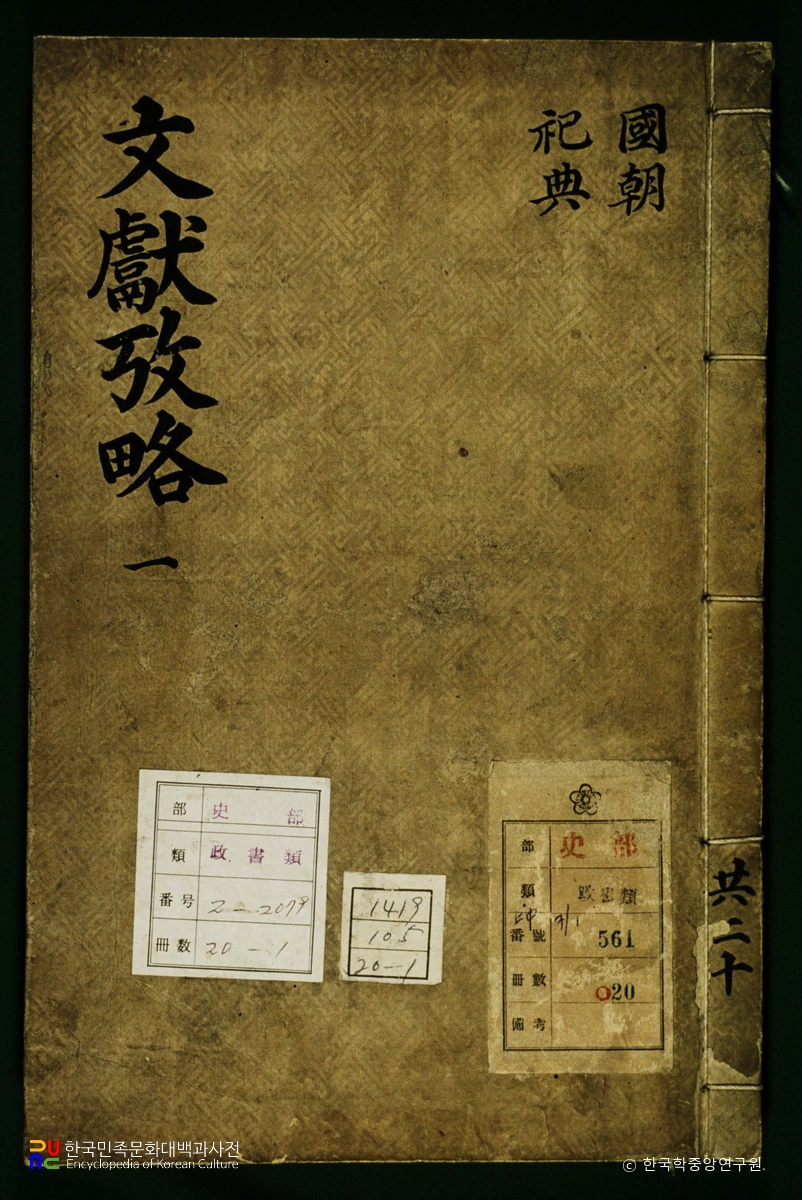 國朝
祀典
文獻攷略 一
共二十
部 史部
類 政書類
番号 2-2079
冊数 20-1
1419
105
20-1
部 史部
類 政書類
番號 561
冊數 20
備考
한국민족문화대백과사전
Encyclopedia of Korean Culture
© 한국학중앙연구원.